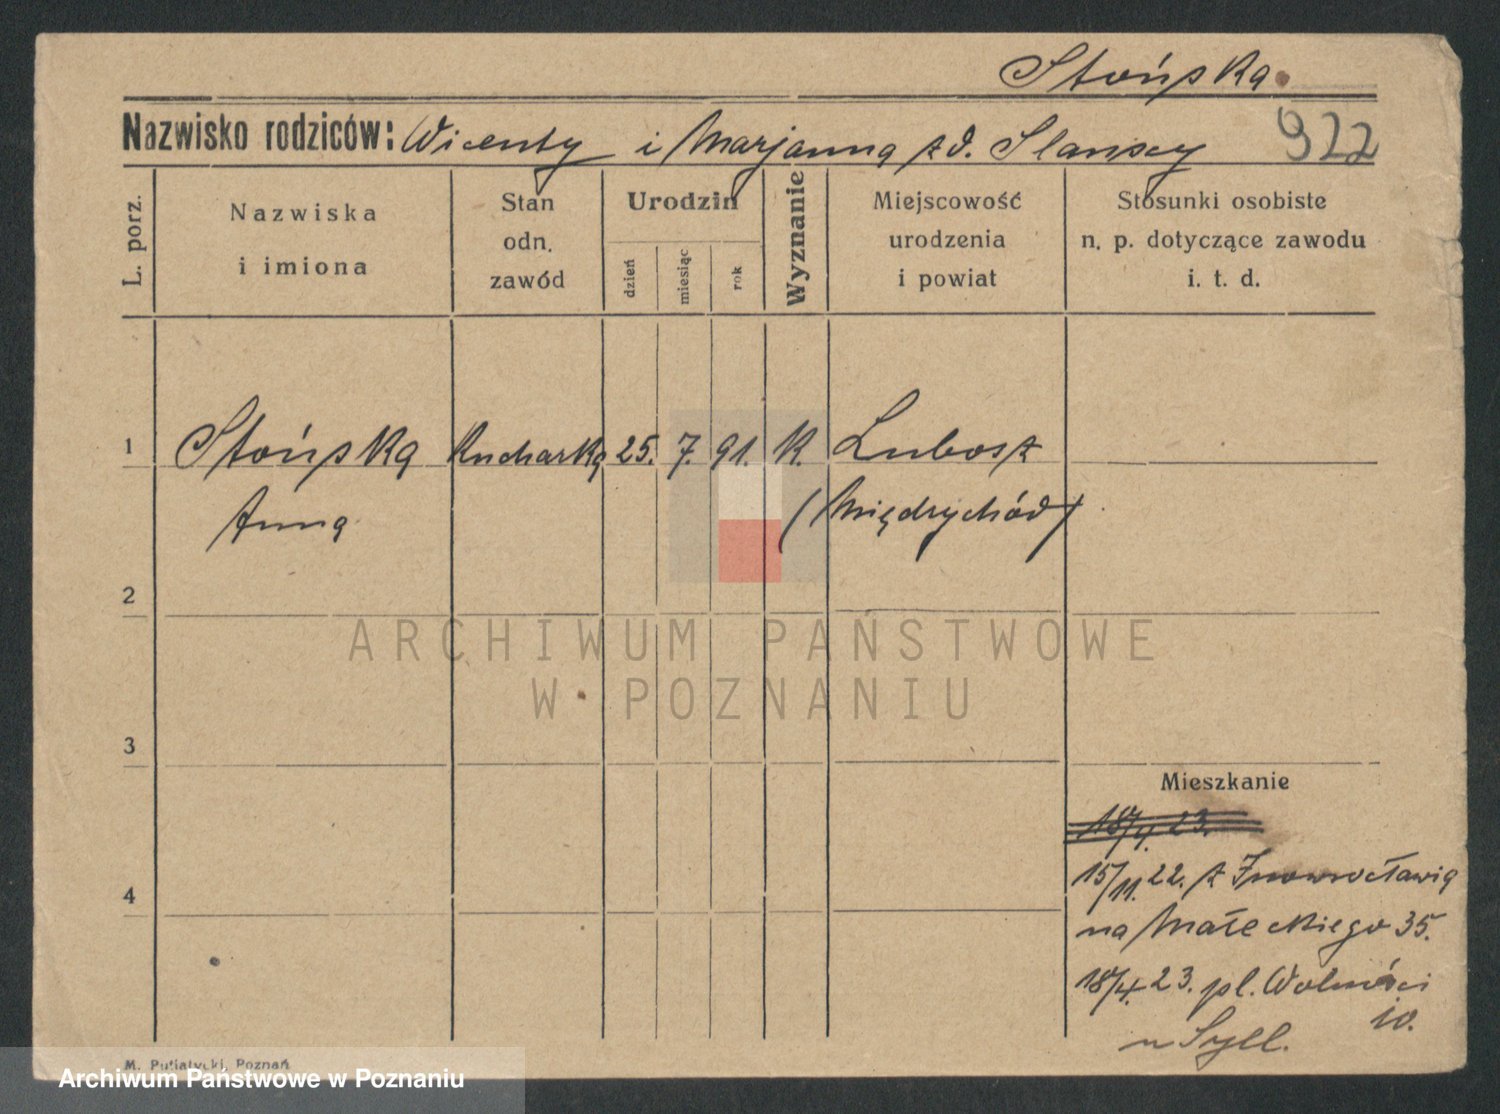 Stońska
Nazwisko rodziców: Wicenty i Marjanna zd. Slanscy 922
L. porz.
Nazwiska
i imiona
Stan
odn.
zawód
Urodzin
dzień
miesiąc
rok
Wyznanie
Miejscowość
urodzenia
i powiat
Stosunki osobiste
n. p. dotyczące zawodu
i. t. d.
1 Stońska Kucharka 25. 7. 91. K. Lubosz
Anna (Międzychód)
2
3
4
Mieszkanie
18/4. 23.
15/11. 22. z Inowrocławia
na Małeckiego 35.
18/4. 23. pl. Wolności
10.
ARCHIWUM PAŃSTWOWE
W POZNANIU
M. Putiatycki, Poznań
Archiwum Państwowe w Poznaniu